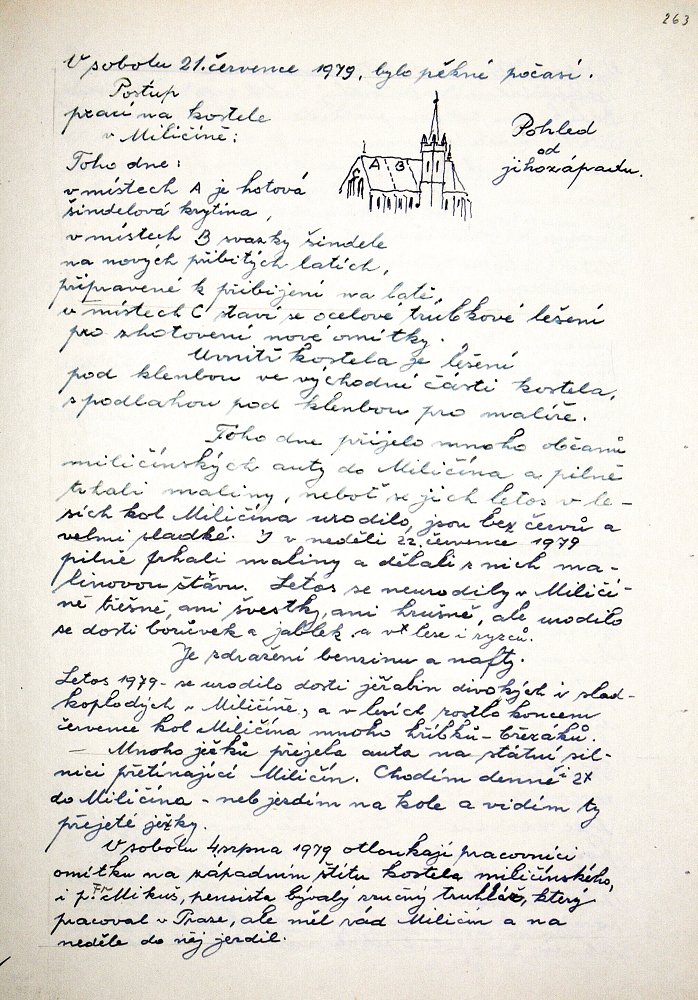 263
V sobotu 21. července 1979, bylo pěkné počasí.
Postup
prací na kostele
v Miličíně:
A B
C
Pohled
od
jihozápadu.
Toho dne:
v místech A je hotová
šindelová krytina,
v místech B svazky šindele
na nových přibitých latích,
připravené k přibíjení na latě,
v místech C staví se ocelové trubkové lešení
pro zhotovení nové omítky.
Uvnitř kostela je lešení
pod klenbou ve východní části kostela,
s podlahou pod klenbou pro malíře.
Toho dne přijelo mnoho občanů
miličínských auty do Miličína a pilně
trhali maliny, neboť se jich letos v le-
sích kol Miličína urodilo, jsou bez červů a
velmi sladké. I v neděli 22. července 1979
pilně trhali maliny a dělali z nich ma-
linovou šťávu. Letos se neurodily v Miličí-
ně třešně, ani švestky, ani hrušně, ale urodilo
se dosti borůvek a jablek a v lese i ryzců.
Je zdražení benzinu a nafty.
Letos 1979 - se urodilo dosti jeřabin divokých i slad-
koplodých v Miličíně, a v lesích rostlo koncem
července kol Miličína mnoho hříbků - březáků.
- Mnoho ježků přejela auta na státní sil-
nici přetínající Miličín. Chodím denně i 2x
do Miličína - neb jezdím na kole a vidím ty
přejeté ježky.
V sobotu 4. srpna 1979 otloukají pracovníci
omítku na západním štítu kostela miličínského,
i p. Fr. Mikuš, pensista bývalý zručný truhlář, který
pracoval v Praze, ale měl rád Miličín a na
neděle do něj jezdil.